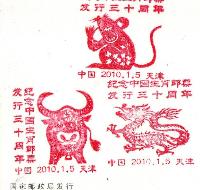 纪念中国生肖邮票
发行三十周年
中国 2010.1.5 天津
纪念中国生肖邮票
发行三十周年
中国 2010.1.5 天津
纪念中国生肖邮票
发行三十周年
中国 2010.1.5 天津
国家邮政局发行